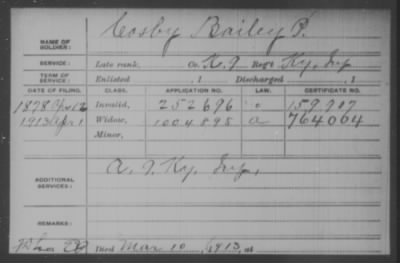 NAME OF SOLDIER: Cosby Bailey P.
SERVICE: Late rank, Co. K. 9 Reg't Ky. Inf
TERM OF SERVICE: Enlisted , 1 Discharged , 1
DATE OF FILING. CLASS. APPLICATION NO. LAW. CERTIFICATE NO.
1878 Invalid, 252696 159907
1913 Apr 1 Widow, 1004895 a 764064
Minor,
ADDITIONAL SERVICES: A. 9 Ky. Inf.
REMARKS:
Died Mar 10, 1913, at